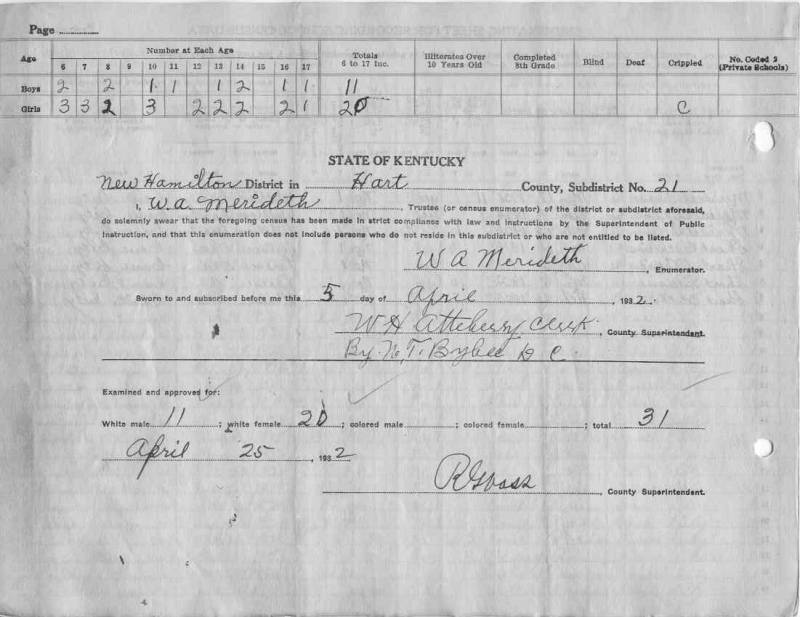 Page
Age Number at Each Age Totals 6 to 17 Inc. Illiterates Over 10 Years Old Completed 8th Grade Blind Deaf Crippled No. Coded 2 (Private Schools)
6 7 8 9 10 11 12 13 14 15 16 17
Boys 2 2 1 1 1 2 1 1 11
Girls 3 3 2 3 2 2 2 2 1 20 C
STATE OF KENTUCKY
New Hamilton District in Hart County, Subdistrict No. 21
I, W. A. Merideth, Trustee (or census enumerator) of the district or subdistrict aforesaid,
do solemnly swear that the foregoing census has been made in strict compliance with law and instructions by the Superintendent of Public
Instruction, and that this enumeration does not include persons who do not reside in this subdistrict or who are not entitled to be listed.
W A Merideth, Enumerator.
Sworn to and subscribed before me this 5 day of April, 1932.
W H Atteberry Clerk, County Superintendent.
By N. T. Bybee D C.
Examined and approved for:
White male 11; white female 20; colored male; colored female; total 31
April 25, 1932
County Superintendent.